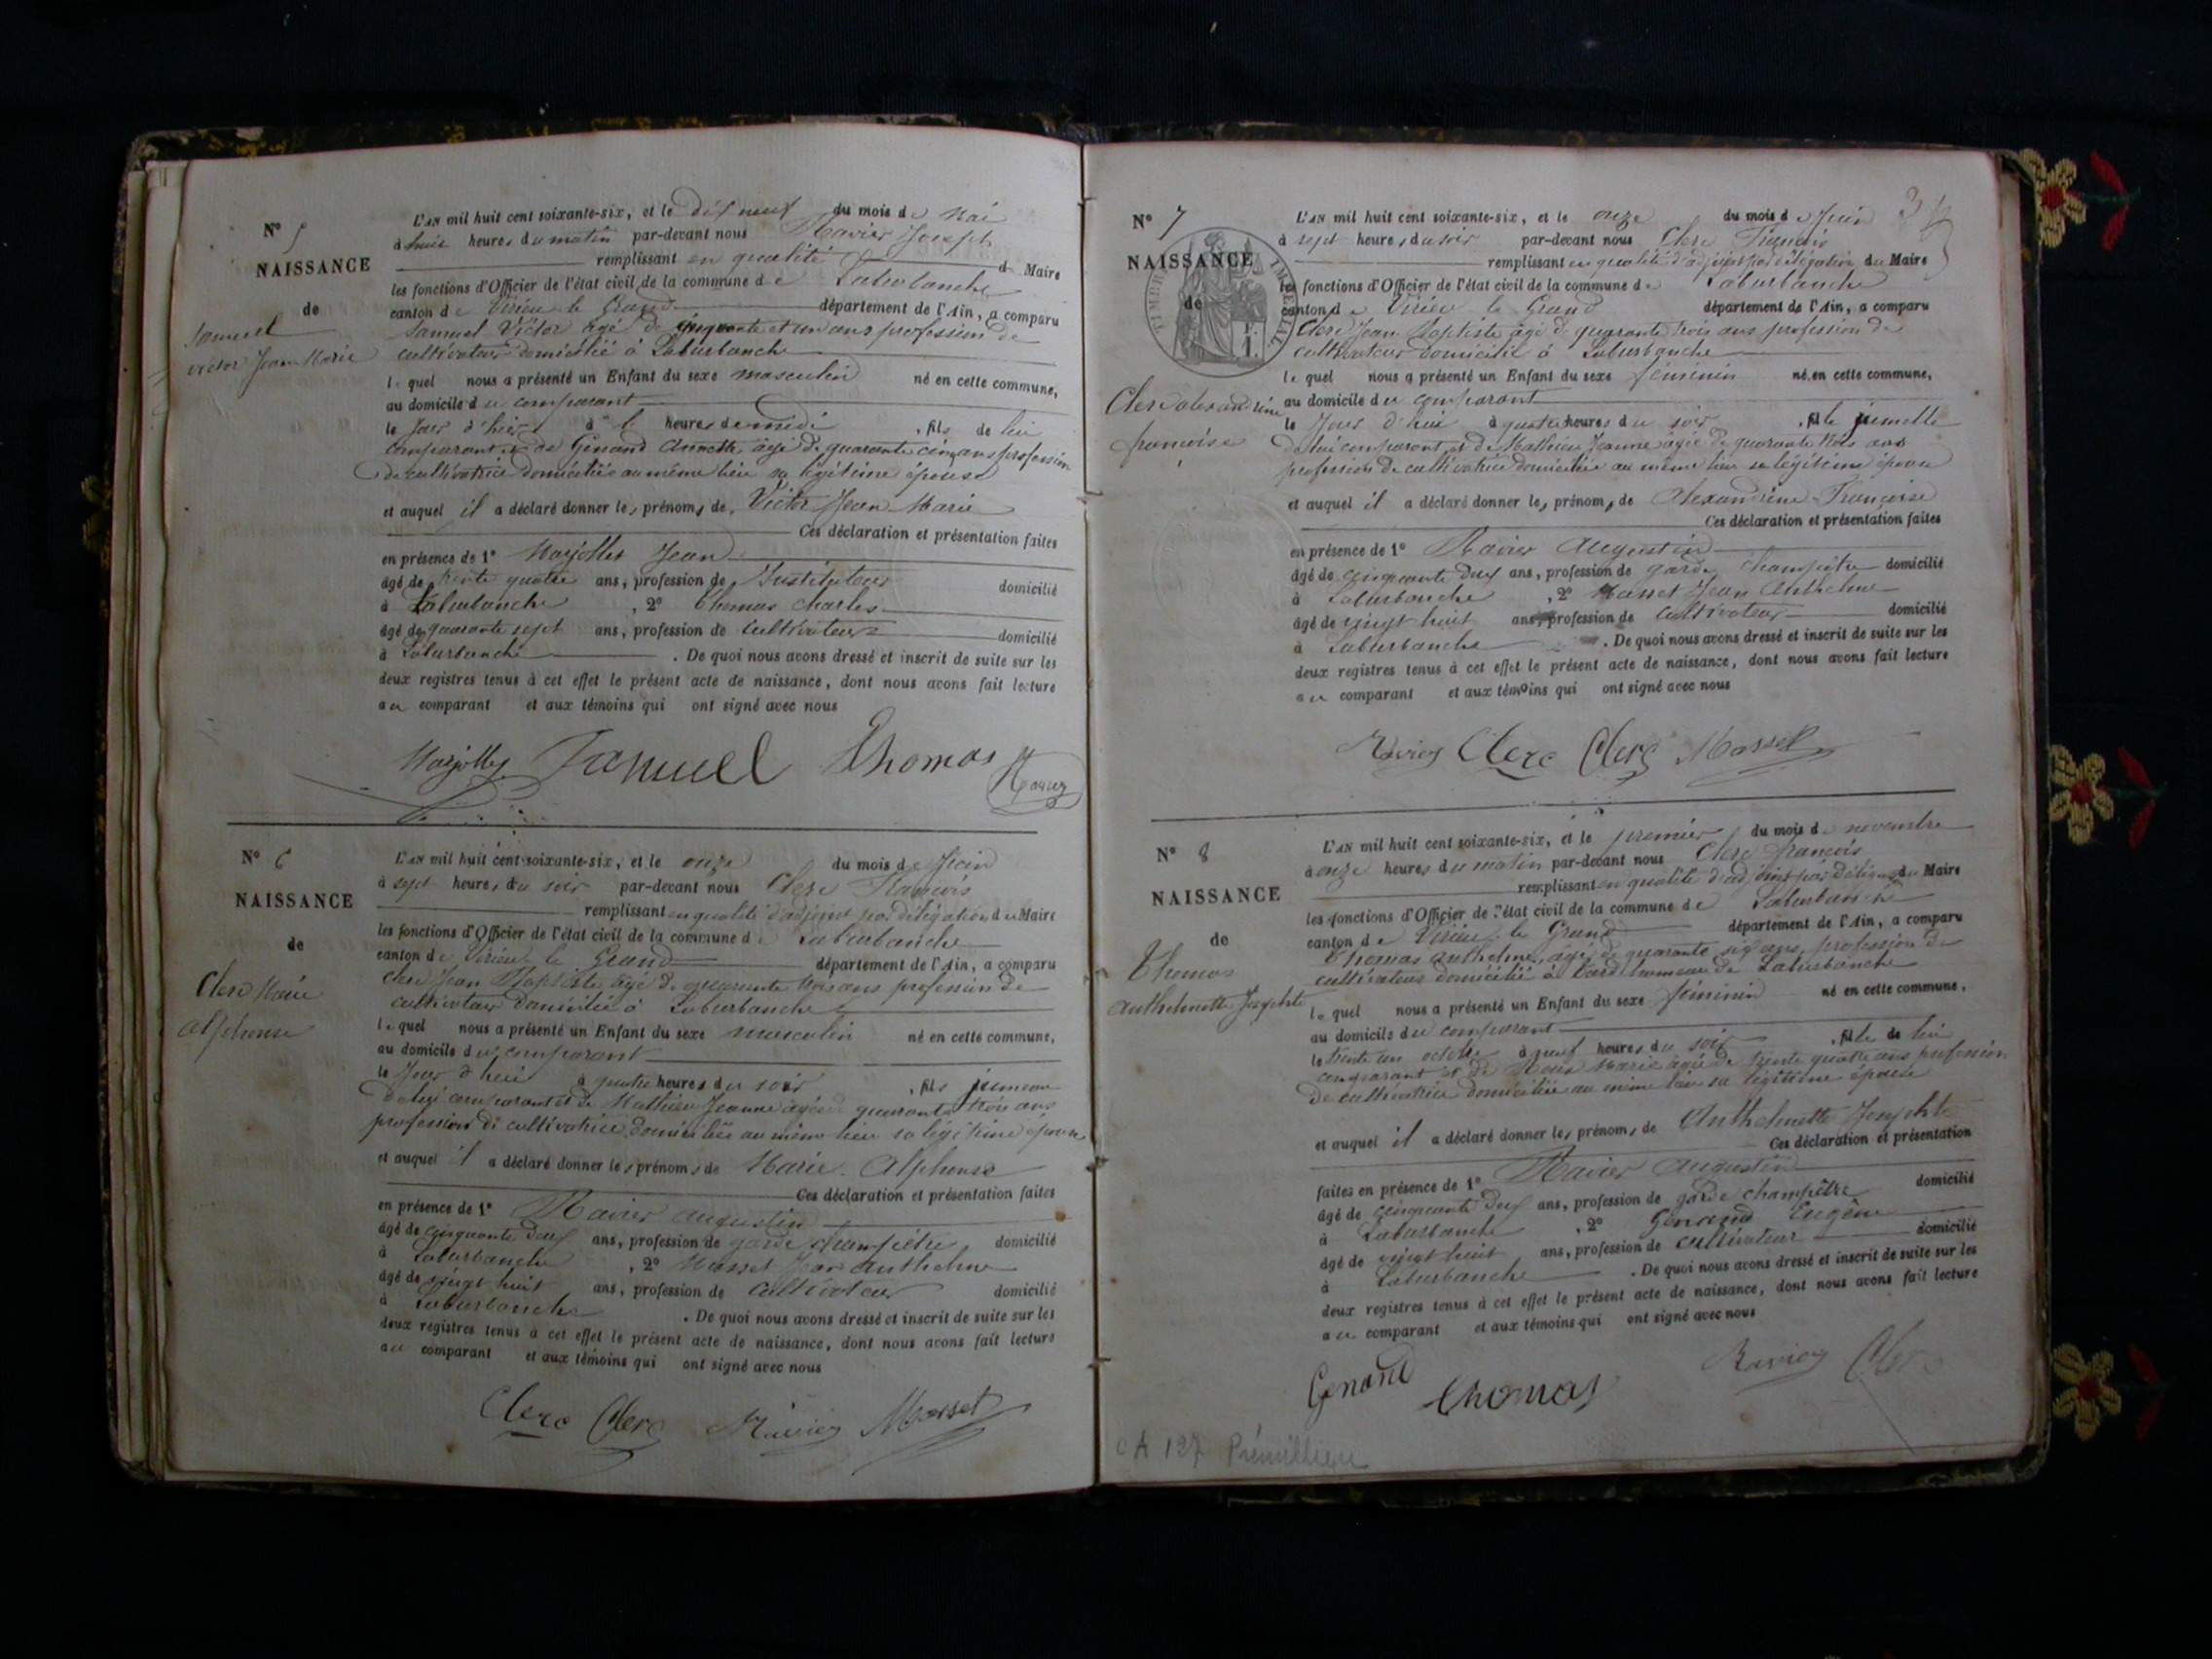 N° 5
NAISSANCE
de
Samuel
Victor Jean Marie
L'AN mil huit cent soixante-six, et le dix neuf du mois de Mai
à huit heures du matin par-devant nous Ravier Joseph
remplissant en qualité de Maire
les fonctions d'Officier de l'état civil de la commune de Laburbanche
canton de Virieu le Grand département de l'Ain, a comparu
Samuel Victor âgé de cinquante et un ans profession de
cultivateur domicilié à Laburbanche
lequel nous a présenté un Enfant du sexe masculin né en cette commune,
au domicile du comparant
le jour d'hier à heures de midi , fils de lui
comparant et de Genand Annette âgée de quarante cinq ans profession
de cultivatrice domiciliée au même lieu sa légitime épouse
et auquel il a déclaré donner les prénoms de Victor Jean Marie
Ces déclaration et présentation faites
en présence de 1° Marjollet Jean
âgé de trente quatre ans, profession de Instituteur domicilié
à Laburbanche , 2° Thomas Charles
âgé de quarante sept ans, profession de cultivateur domicilié
à Laburbanche . De quoi nous avons dressé et inscrit de suite sur les
deux registres tenus à cet effet le présent acte de naissance, dont nous avons fait lecture
au comparant et aux témoins qui ont signé avec nous
Samuel Thomas Ravier
N° 6
NAISSANCE
de
Clerc Marie
alphonse
L'AN mil huit cent soixante-six, et le onze du mois de Juin
à sept heures du soir par-devant nous Clerc François
remplissant en qualité d'adjoint par délégation du Maire
les fonctions d'Officier de l'état civil de la commune de Laburbanche
canton de Virieu le Grand département de l'Ain, a comparu
Clerc Jean Baptiste âgé de quarante trois ans profession de
cultivateur domicilié à Laburbanche
lequel nous a présenté un Enfant du sexe masculin né en cette commune,
au domicile du comparant
le Jour d'hui à quatre heures du soir , fils jumeau
de lui comparant et de Mathieu Jeanne âgée de quarante trois ans
profession de cultivatrice domiciliée au même lieu sa légitime épouse
et auquel il a déclaré donner les prénoms de Marie Alphonse
Ces déclaration et présentation faites
en présence de 1° Ravier Augustin
âgé de cinquante deux ans, profession de garde champêtre domicilié
à Laburbanche , 2° Masset Jean Anthelme
âgé de vingt huit ans, profession de cultivateur domicilié
à Laburbanche . De quoi nous avons dressé et inscrit de suite sur les
deux registres tenus à cet effet le présent acte de naissance, dont nous avons fait lecture
au comparant et aux témoins qui ont signé avec nous
Clerc Clerc Ravier Masset
N° 7
NAISSANCE
de
Clerc alexandrine
françoise
L'AN mil huit cent soixante-six, et le onze du mois de Juin
à sept heures du soir par-devant nous Clerc François
remplissant en qualité d'adjoint par délégation du Maire
les fonctions d'Officier de l'état civil de la commune de Laburbanche
canton de Virieu le Grand département de l'Ain, a comparu
Clerc Jean Baptiste âgé de quarante trois ans profession de
cultivateur domicilié à Laburbanche
lequel nous a présenté un Enfant du sexe féminin né en cette commune,
au domicile du comparant
le Jour d'hui à quatre heures du soir , fille jumelle
de lui comparant et de Mathieu Jeanne âgée de quarante trois ans
profession de cultivatrice domiciliée au même lieu sa légitime épouse
et auquel il a déclaré donner les prénoms de Alexandrine Françoise
Ces déclaration et présentation faites
en présence de 1° Ravier Augustin
âgé de cinquante deux ans, profession de garde champêtre domicilié
à Laburbanche , 2° Masset Jean Anthelme
âgé de vingt huit ans, profession de cultivateur domicilié
à Laburbanche . De quoi nous avons dressé et inscrit de suite sur les
deux registres tenus à cet effet le présent acte de naissance, dont nous avons fait lecture
au comparant et aux témoins qui ont signé avec nous
Ravier Clerc Clerc Masset
N° 8
NAISSANCE
de
Thomas
Anthelmette Josephte
L'AN mil huit cent soixante-six, et le premier du mois de novembre
à onze heures du matin par-devant nous Clerc françois
remplissant en qualité d'adjoint par délégation du Maire
les fonctions d'Officier de l'état civil de la commune de Laburbanche
canton de Virieu le Grand département de l'Ain, a comparu
Thomas Anthelme, âgé de quarante six ans, profession de
cultivateur domicilié à hameau de Laburbanche
lequel nous a présenté un Enfant du sexe féminin né en cette commune,
au domicile du comparant
le trente un octobre à neuf heures du soir , fille de lui
comparant et de Marie âgée de trente quatre ans profession
de cultivatrice domiciliée au même lieu sa légitime épouse
et auquel il a déclaré donner les prénoms de Anthelmette Josephte
Ces déclaration et présentation
faites en présence de 1° Ravier Augustin
âgé de cinquante deux ans, profession de garde champêtre domicilié
à Laburbanche , 2° Genand Eugène
âgé de vingt huit ans, profession de cultivateur domicilié
à Laburbanche . De quoi nous avons dressé et inscrit de suite sur les
deux registres tenus à cet effet le présent acte de naissance, dont nous avons fait lecture
au comparant et aux témoins qui ont signé avec nous
Genand Thomas Ravier Clerc
CA 137 Prémillieu